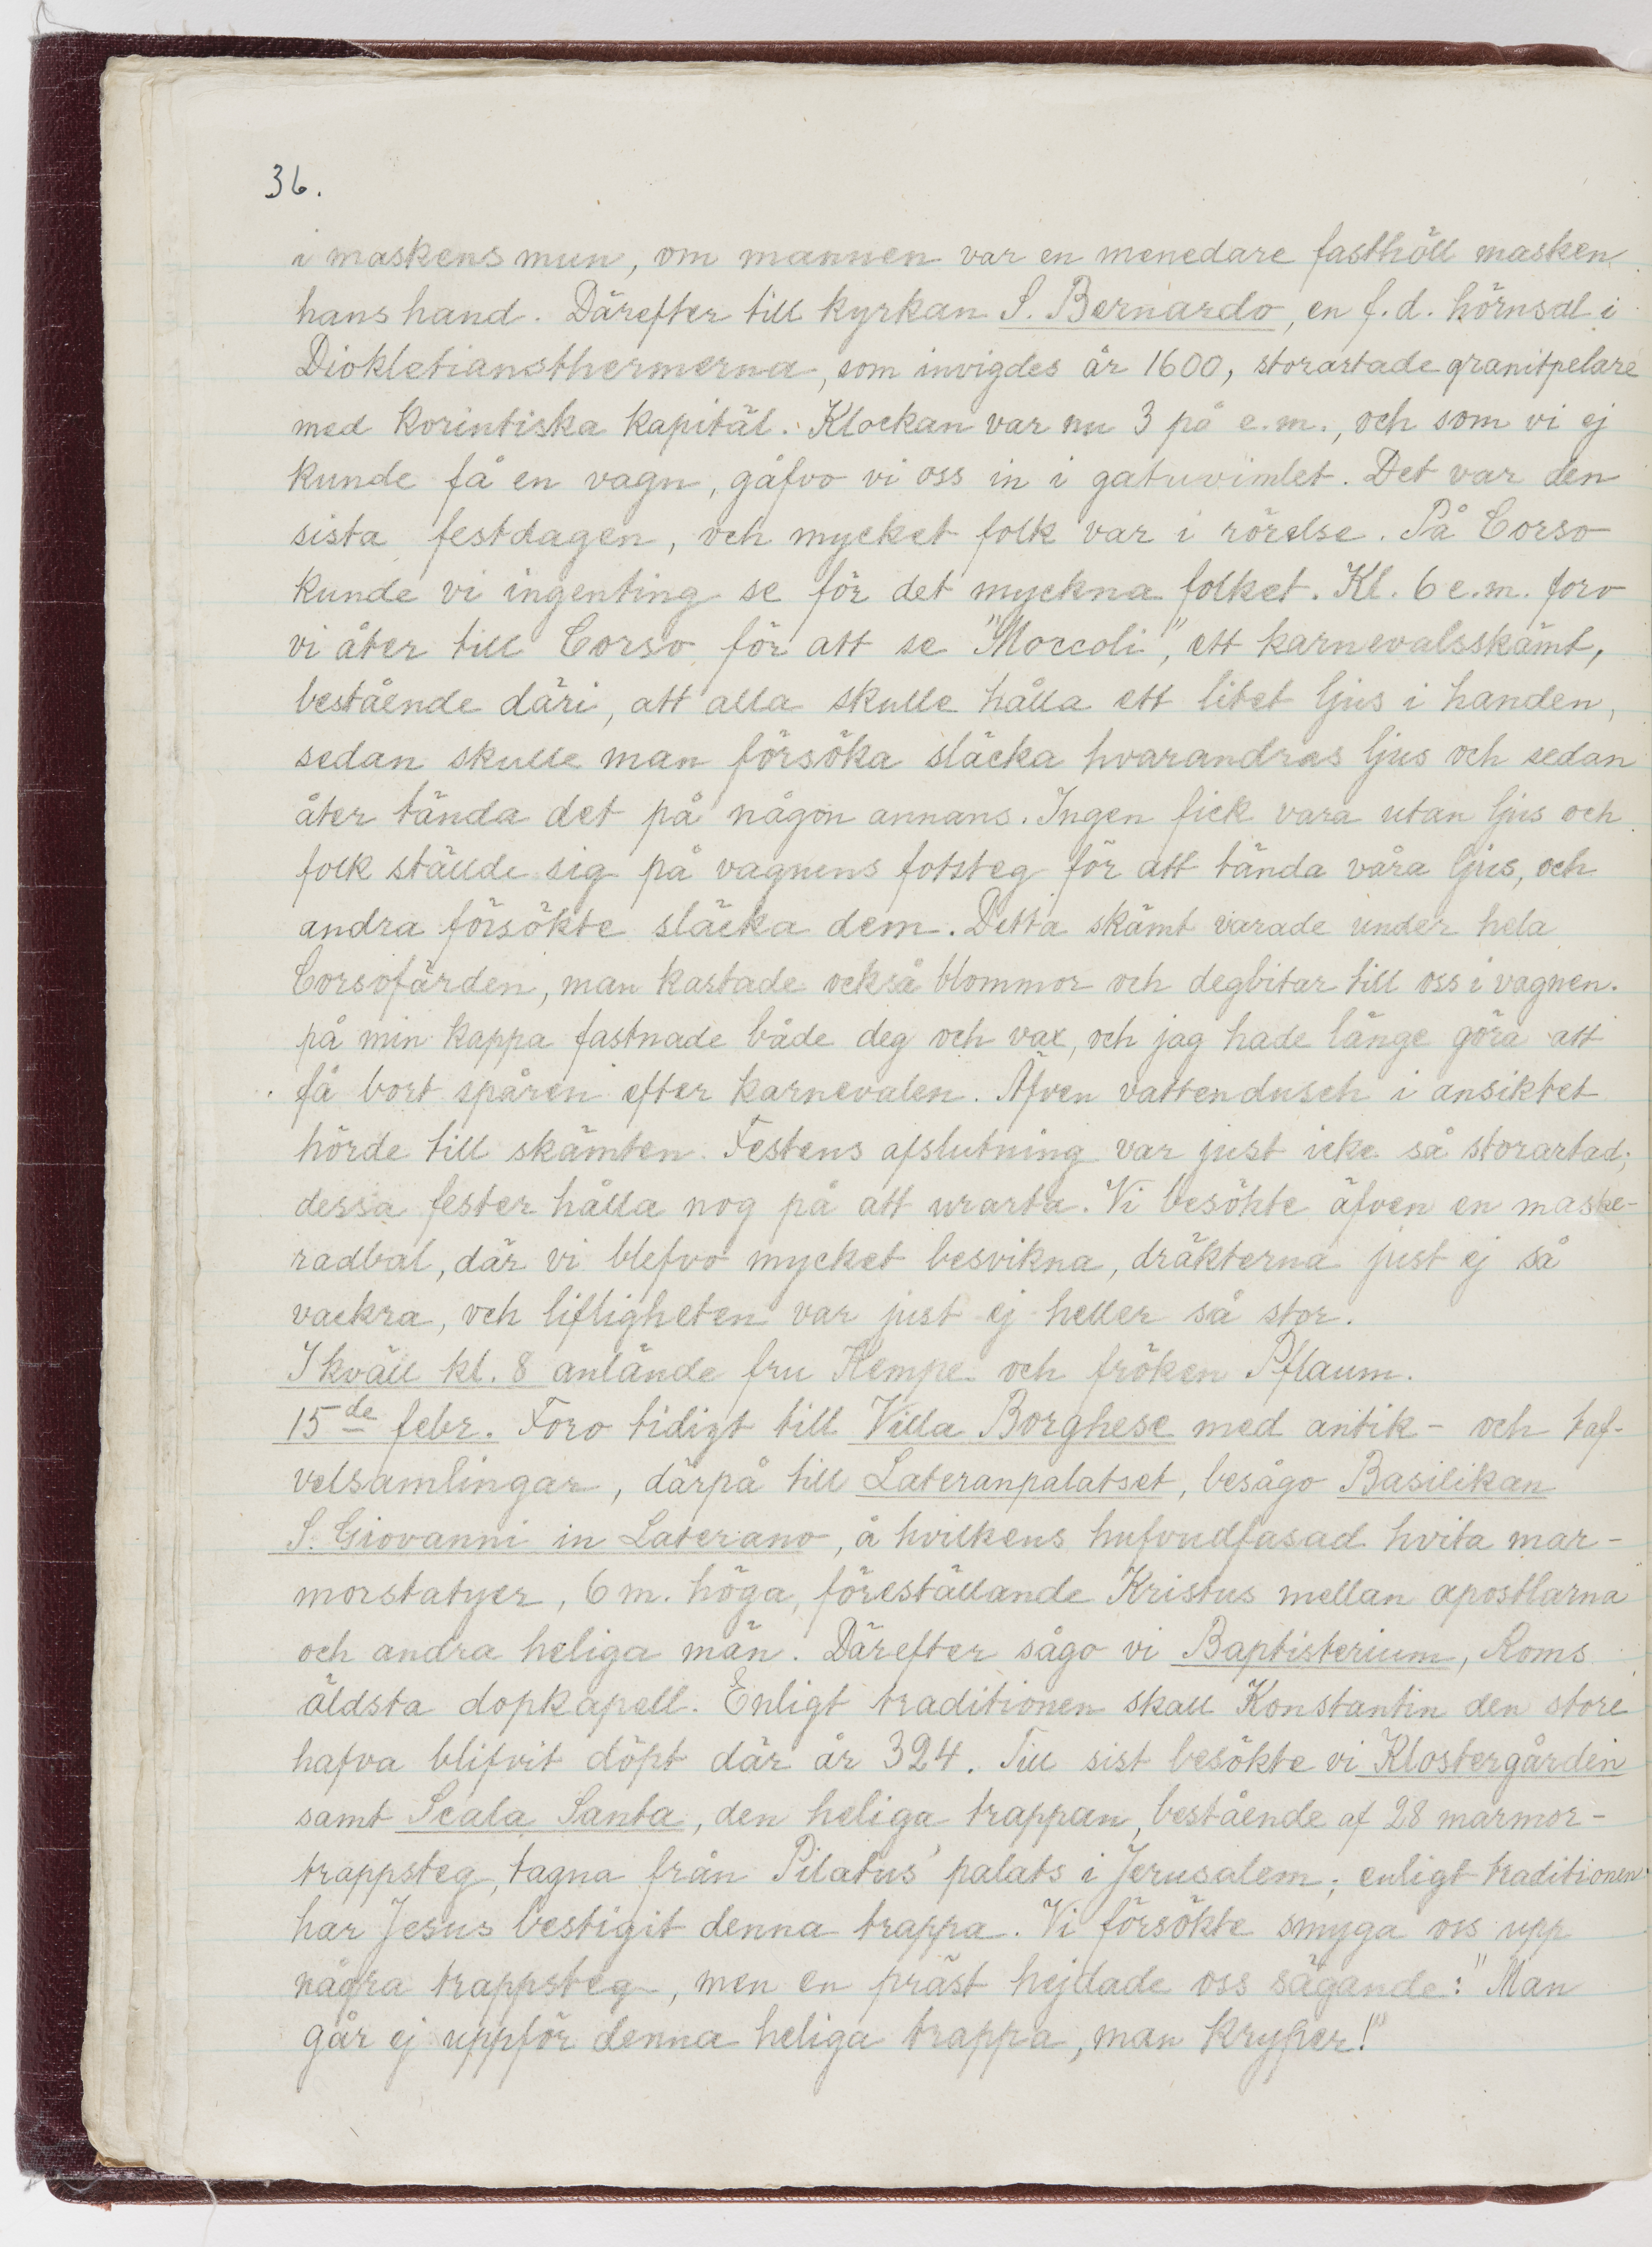 36.
i maskens mun, om mannen var en menedare fasthöll masken
hans hand. Därefter till kyrkan S. Bernardo, en f.d. hörnsal i
Diokletiansthermerna, som invigdes år 1600, storartade granitpelare
med korintiska kapitäl. Klockan var nu 3 på e.m., och som vi ej
kunde få en vagn, gåfvo vi oss in i gatuvimlet. Det var den
sista festdagen, och mycket folk var i rörelse. På Corso
kunde vi ingenting se för det myckna folket. Kl. 6 e.m. foro
vi åter till Corso för att se "Moccoli", ett karnevalsskämt,
bestående däri, att alla skulle hålla ett litet ljus i handen,
sedan skulle man försöka släcka hvarandras ljus och sedan
åter tända det på någon annans. Ingen fick vara utan ljus och
folk ställde sig på vagnens fotsteg för att tända våra ljus, och
andra försökte släcka dem. Detta skämt varade under hela
Corsofärden, man kastade också blommor och degbitar till oss i vagnen.
på min kappa fastnade både deg och vax, och jag hade länge göra att
få bort spåren efter karnevalen. Äfven vattendusch i ansiktet
hörde till skämten. Festens afslutning var just icke så storartad;
dessa fester hålla nog på att urarta. Vi besökte äfven en maske-
radbal, där vi blefvo mycket besvikna, dräkterna just ej så
vackra, och lifligheten var just ej heller så stor.
I kväll kl. 8 anlände fru Kempe och fröken Pflaum.
15de febr. Foro tidigt till Villa Borghese med antik- och taf-
velsamlingar, därpå till Lateranpalatset, besågo Basilikan
S. Giovanni in Laterano, å hvilkens hufvudfasad hvita mar-
morstatyer, 6 m. höga, föreställande Kristus mellan apostlarna
och andra heliga män. Därefter sågo vi Baptisterium, Roms
äldsta dopkapell. Enligt traditionen skall Konstantin den store
hafva blifvit döpt där år 324. Till sist besökte vi Klostergården
samt Scala Santa, den heliga trappan, bestående af 28 marmor-
trappsteg, tagna från Pilatus' palats i Jerusalem; enligt traditionen
har Jesus bestigit denna trappa. Vi försökte smyga oss upp
några trappsteg, men en präst hejdade oss sägande: "Man
går ej uppför denna heliga trappa, man kryper!"